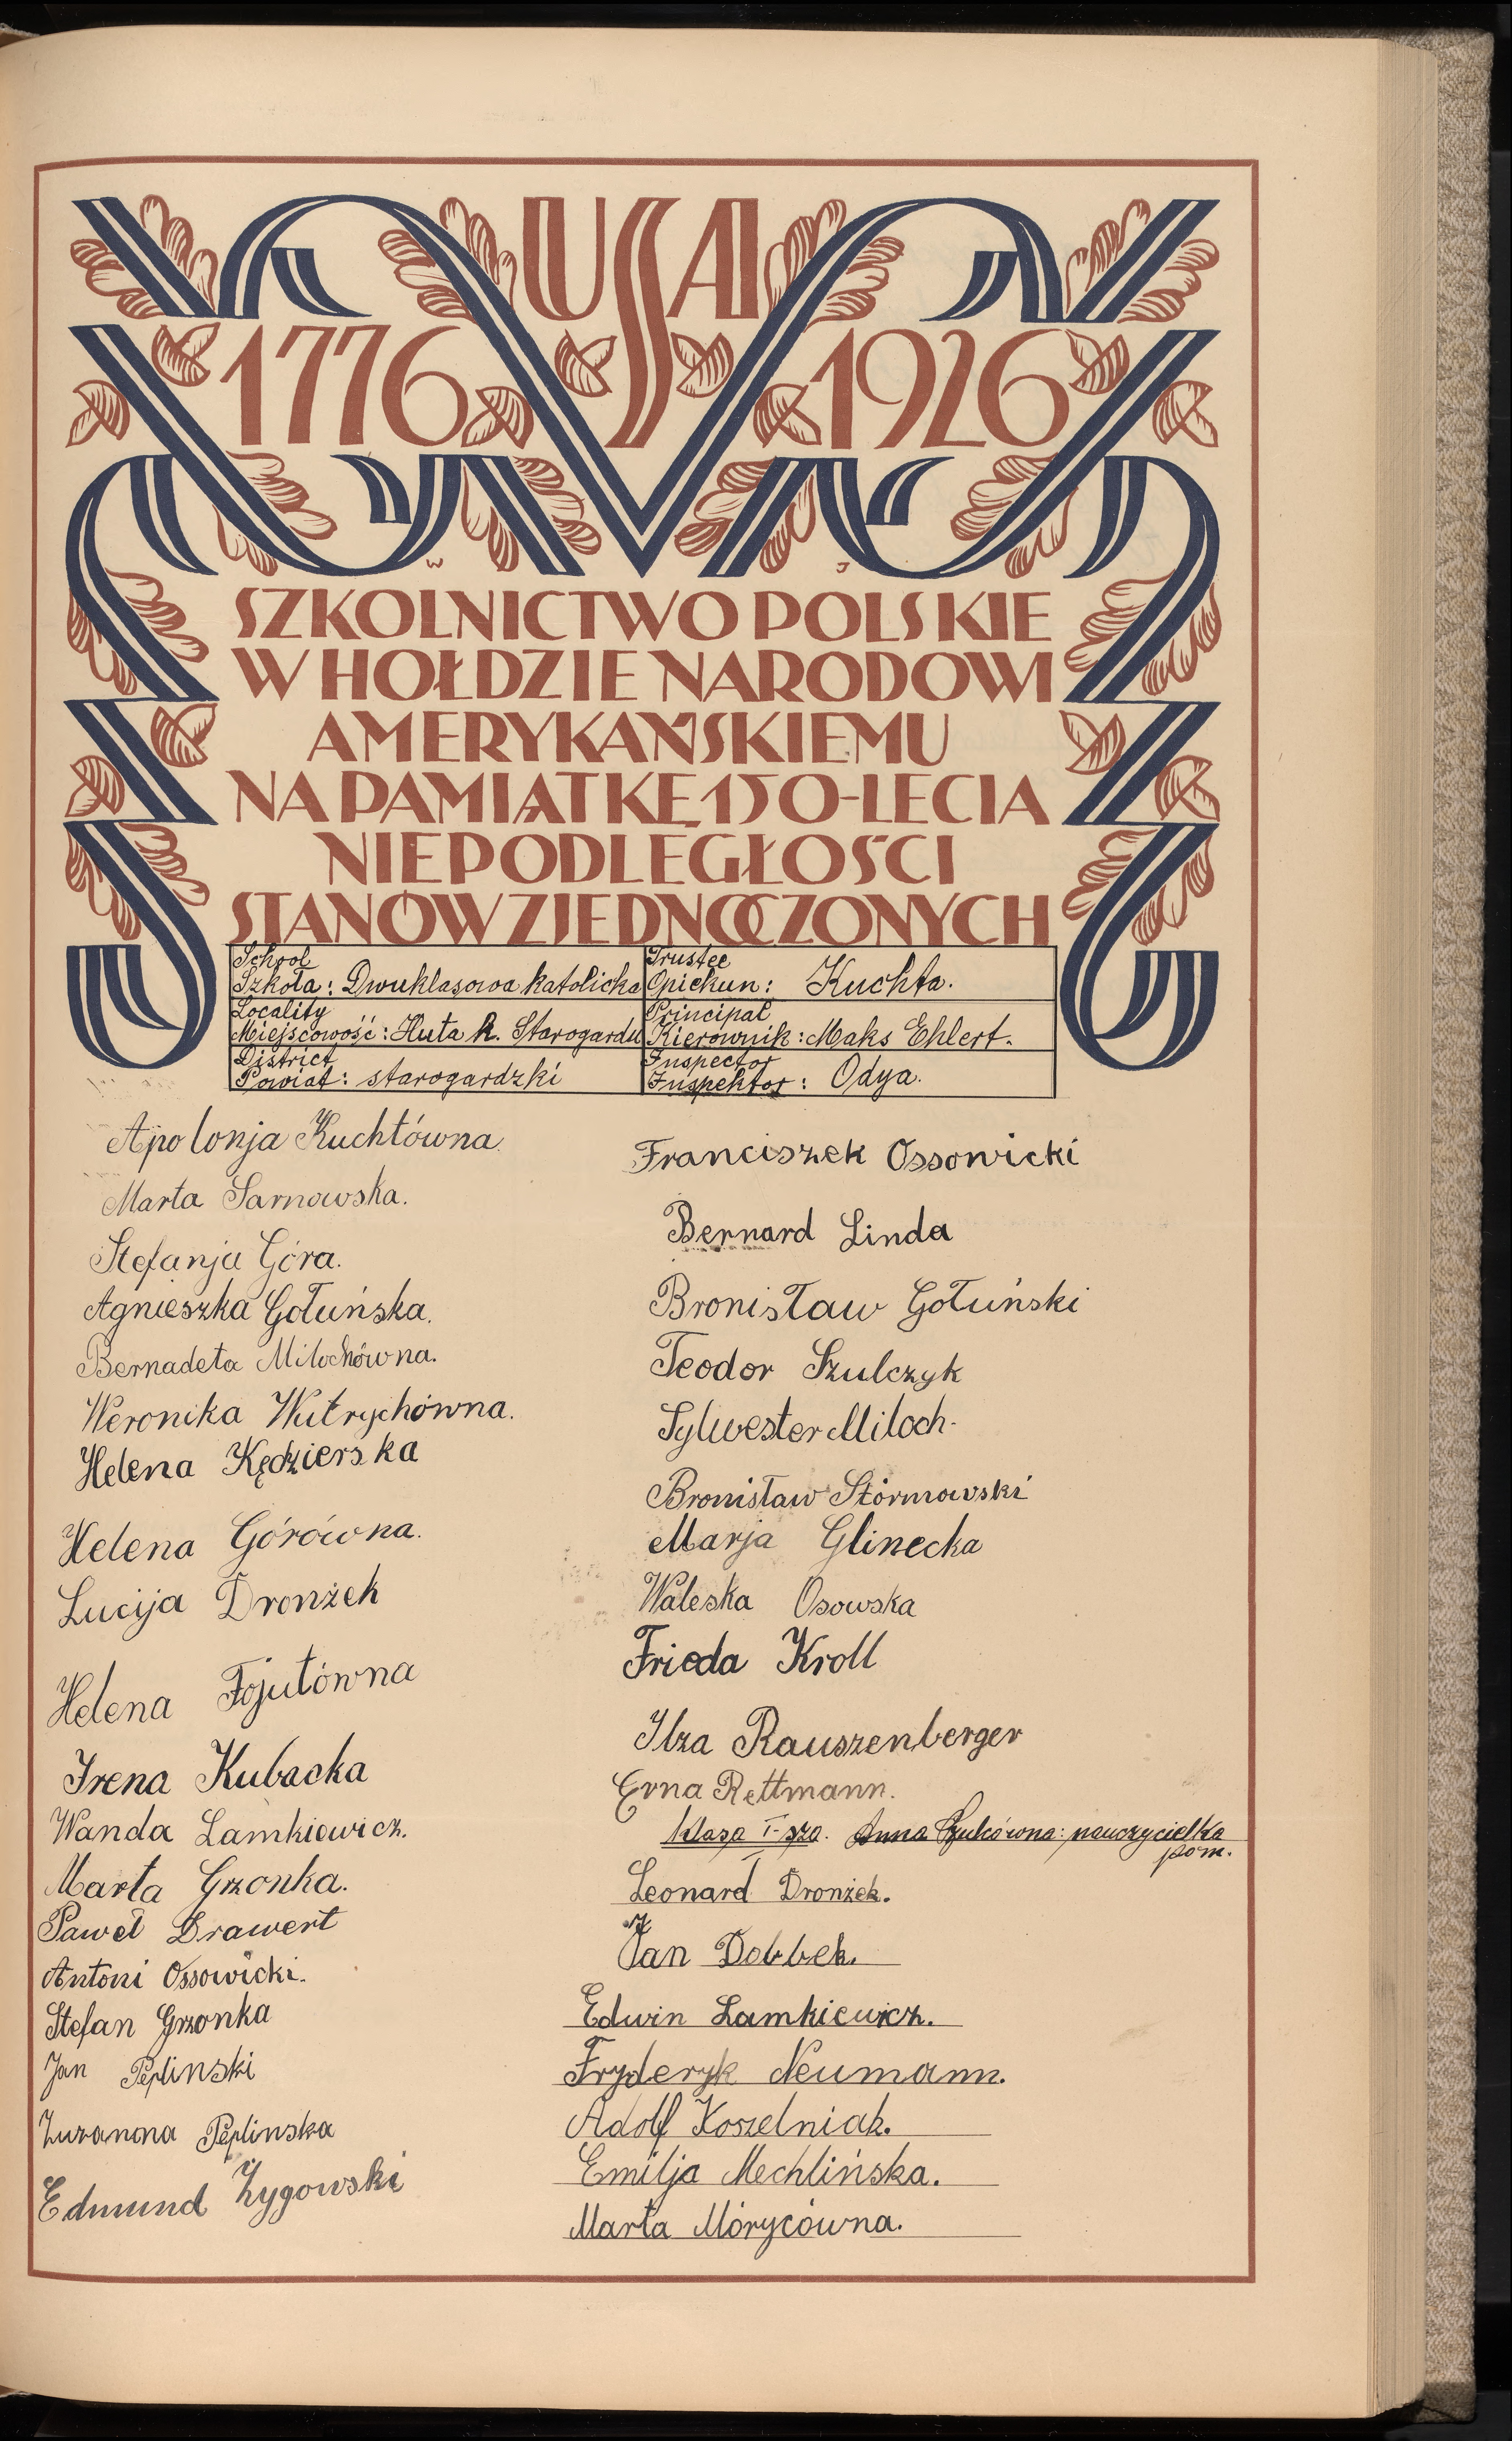 USA
1776 1926
W J
SZKOLNICTWO POLSKIE
W HOŁDZIE NARODOWI
AMERYKAŃSKIEMU
NA PAMIĄTKĘ 150-LECIA
NIEPODLEGŁOŚCI
STANÓW ZJEDNOCZONYCH
School
Szkoła: Dwuklasowa katolicka
Trustee
Opiekun: Kuchta.
Locality
Miejscowość: Huta k. Starogardu
Principal
Kierownik: Maks Ehlert.
District
Powiat: starogardzki
Inspector
Inspektor: Odya.
Apolonja Kuchtówna.
Marta Sarnowska.
Stefanja Góra.
Agnieszka Gołuńska.
Bernadeta Milochówna.
Weronika Witrychówna.
Helena Kędzierska
Helena Górówna.
Lucija Dronżek
Helena Fojutówna
Irena Kubacka
Wanda Lamkiewicz.
Marta Grzonka.
Paweł Drawert
Antoni Ossowicki.
Stefan Grzonka
Jan Peplinski
Zuzanna Peplinska
Edmund Żygowski
Franciszek Ossowicki
Bernard Linda
Bronisław Gołuński
Teodor Szulczyk
Sylwester Miloch.
Bronisław Stórmowski
Marja Glinecka
Waleska Osowska
Frieda Kroll
Ilza Rauszenberger
Erna Rettmann.
klasa I-sza. Anna Szulcówna: nauczycielka
pom.
Leonard Dronżek.
Jan Dobbek.
Edwin Lamkiewicz.
Fryderyk Neumann.
Adolf Koszelniak.
Emilja Mechlińska.
Marta Mórycówna.